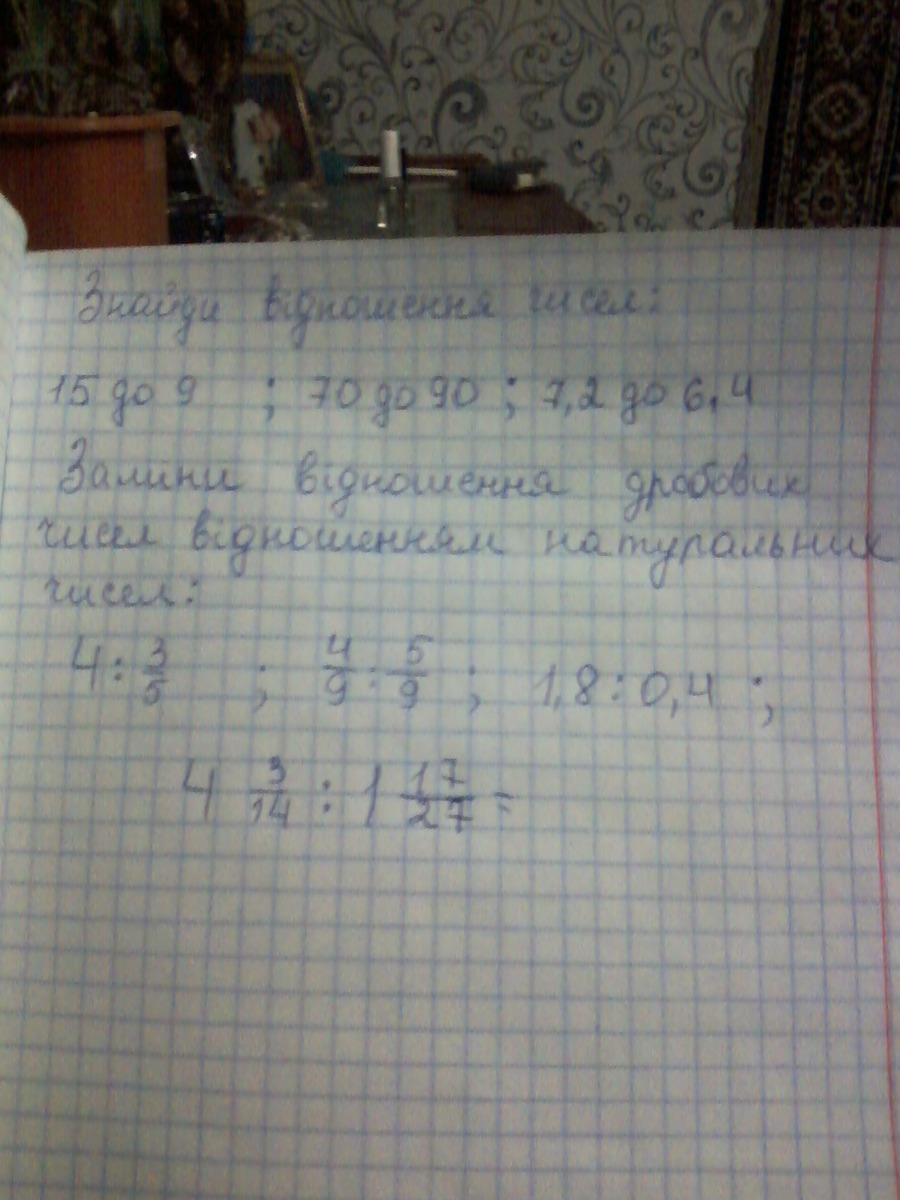 Знайди відношення чисел:
15 до 9 ; 70 до 90 ; 7,2 до 6,4
Заміни відношення дробових
чисел відношенням натуральних
чисел:
4 : 3/5 ; 4/9 : 5/9 ; 1,8 : 0,4 ;
4 3/14 : 1 17/27 =